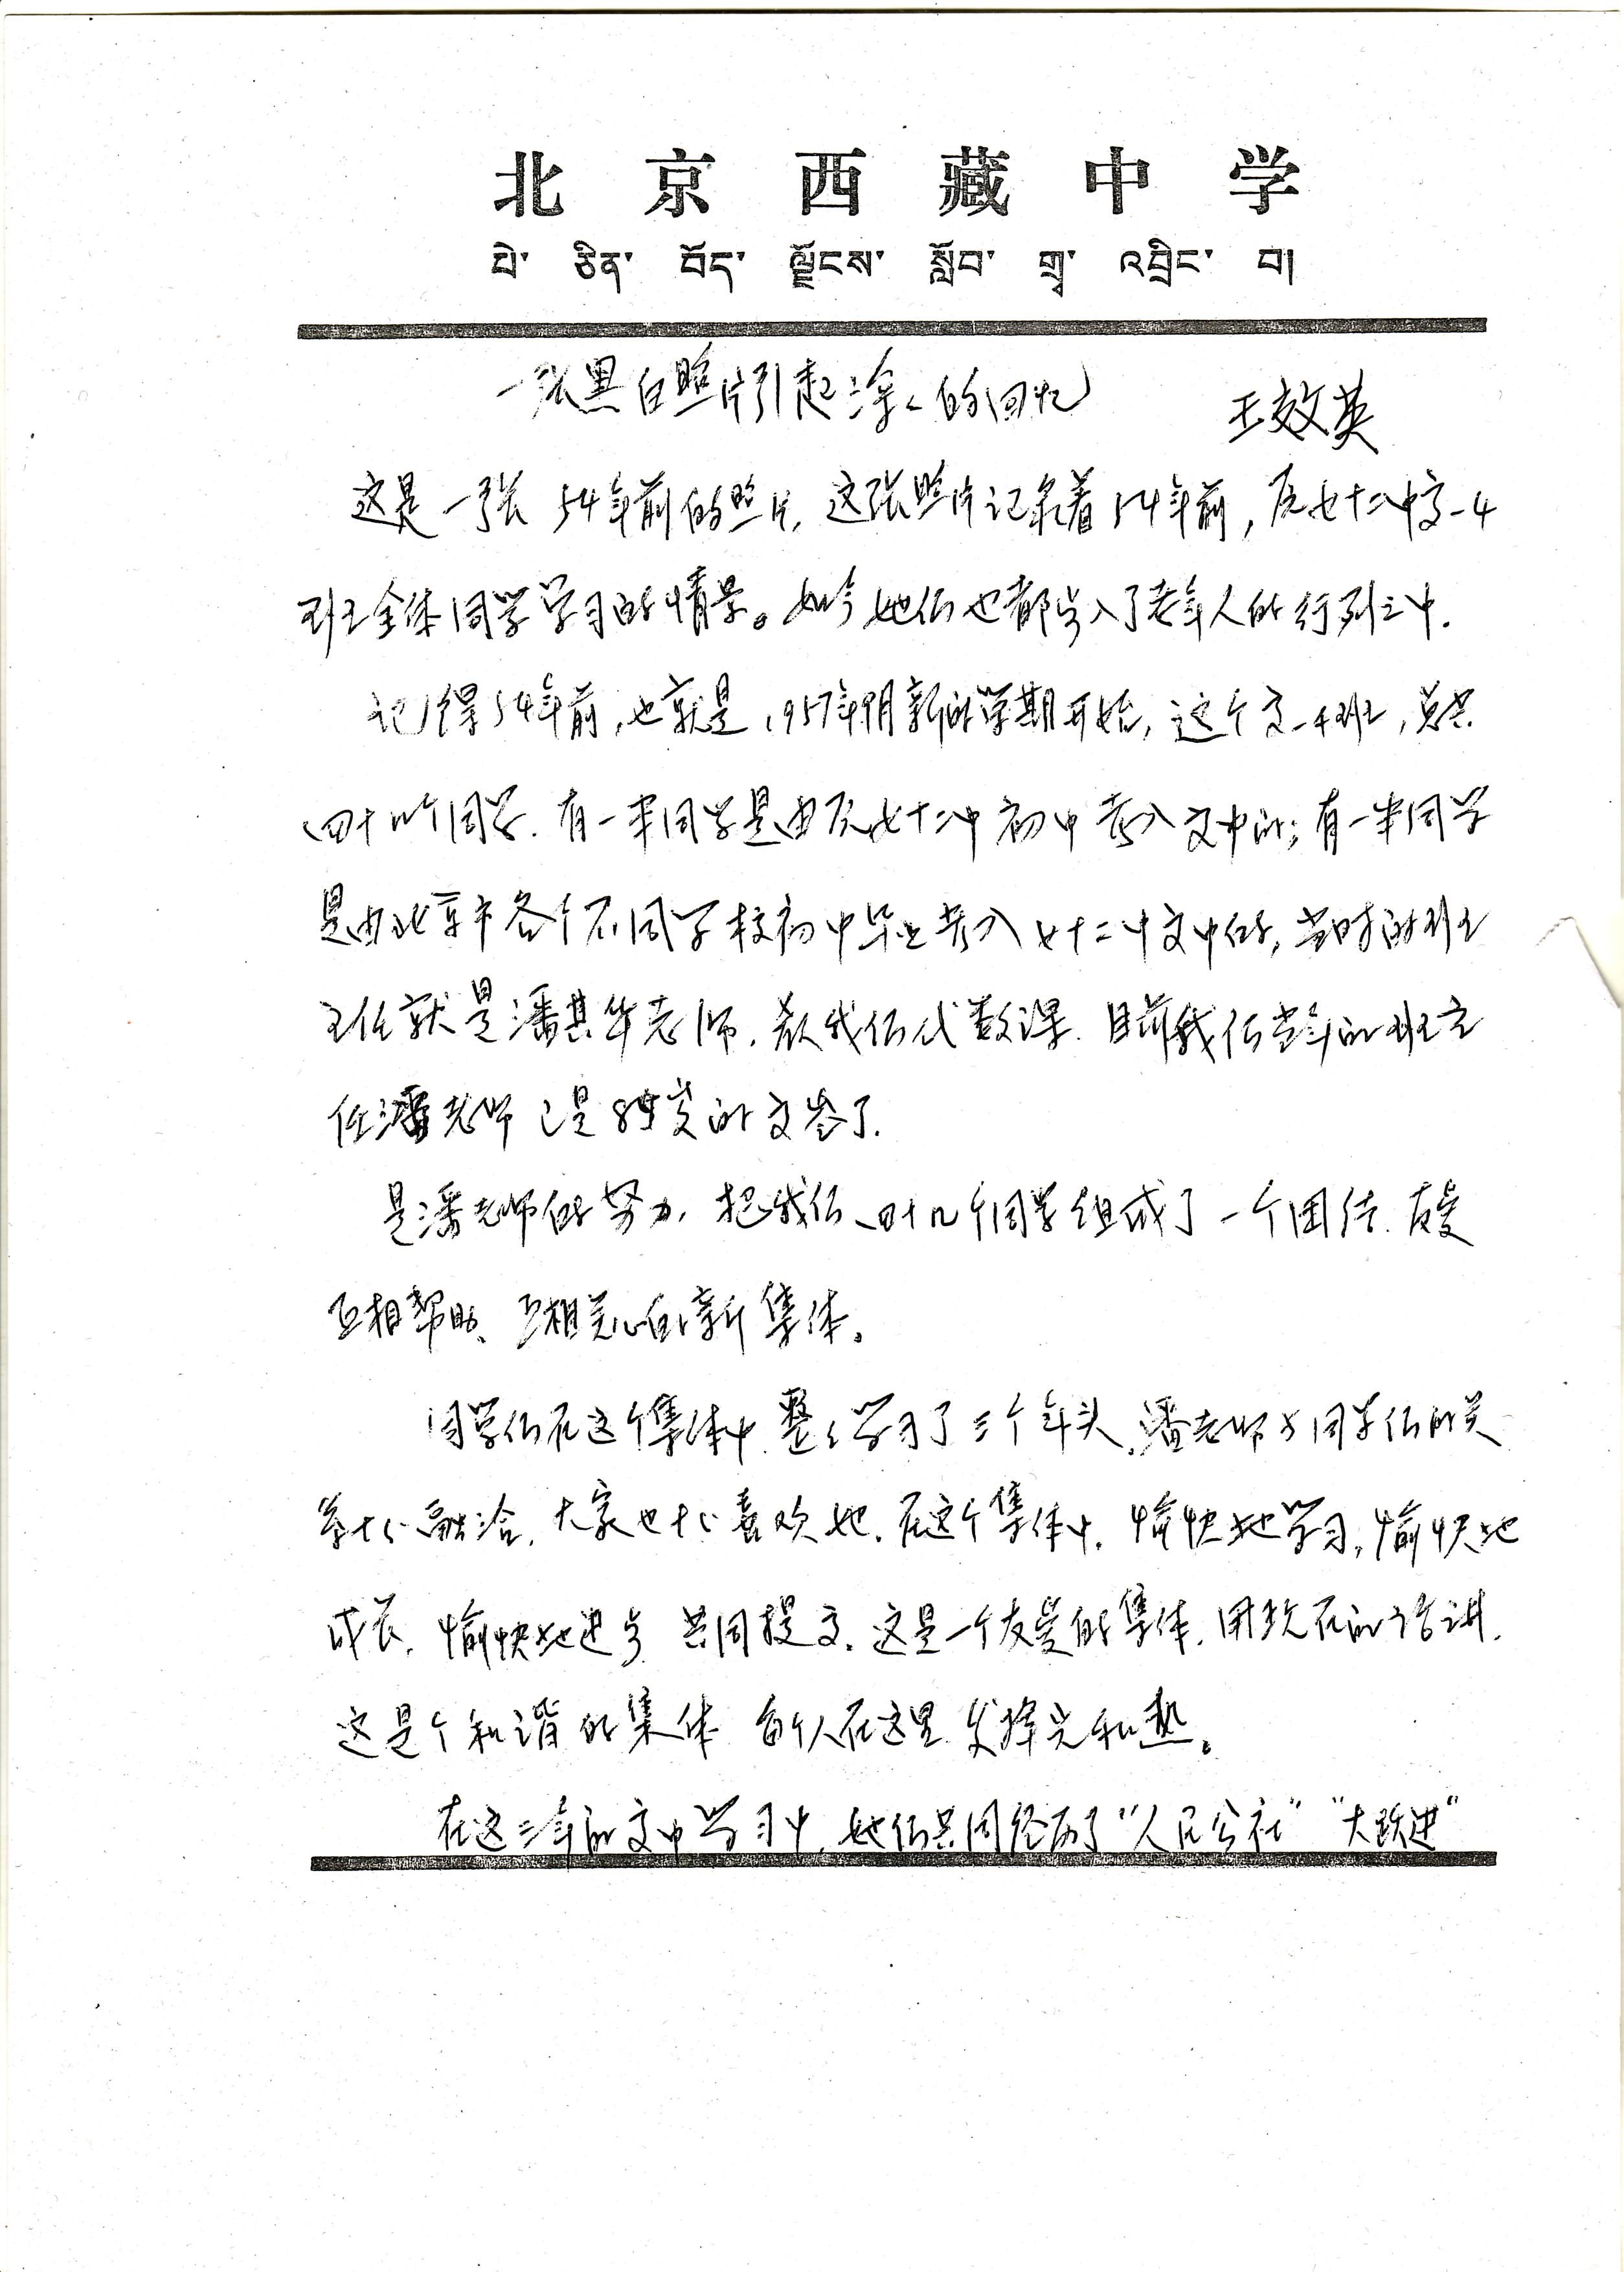 北京西藏中学
པེ་ ཅིན་ བོད་ ལྗོངས་ སློབ་ གྲྭ་ འབྲིང་ བ།
一张黑白照片引起深々的回忆
王效英
这是一张54年前的照片,这张照片记录着54年前,原七十二中高一4
班全体同学学习的情景。如今她们也都步入了老年人的行列之中.
记得54年前,也就是1957年9月新的学期开始,这个高一4班,总共
四十几个同学.有一半同学是由原七十二中初中考入高中的;有一半同学
是由北京市各个不同学校初中毕业考入七十二中高中的,当时的班
主任就是潘其华老师.教我们代数课.目前我们当年的班主
任潘老师已是85岁的高龄了.
是潘老师的努力,把我们四十几个同学组成了一个团结.友爱
互相帮助、互相关心的新集体。
同学们在这个集体中整々学习了三个年头,潘老师与同学们的关
系十分融洽,大家也十分喜欢她.在这个集体中,愉快地学习,愉快地
成长,愉快地进步 共同提高.这是一个友爱的集体,用现在的话讲.
这是个和谐的集体 每个人在这里发挥光和热。
在这三年的高中学习中,她们共同经历了“人民公社”“大跃进”